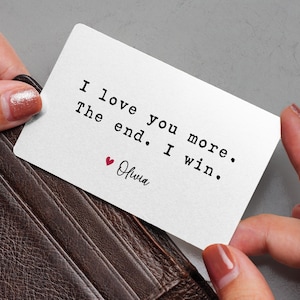 I love you more.
The end. I win.
Olivia